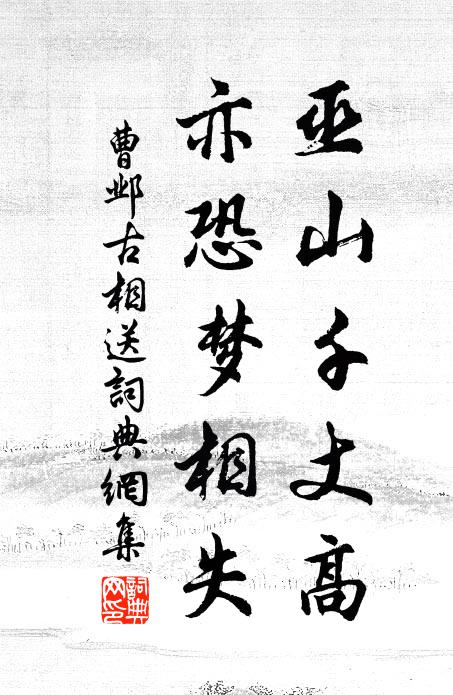 巫山千丈高
亦恐梦相失
曹邺古相送詞典網集
詞典
网印